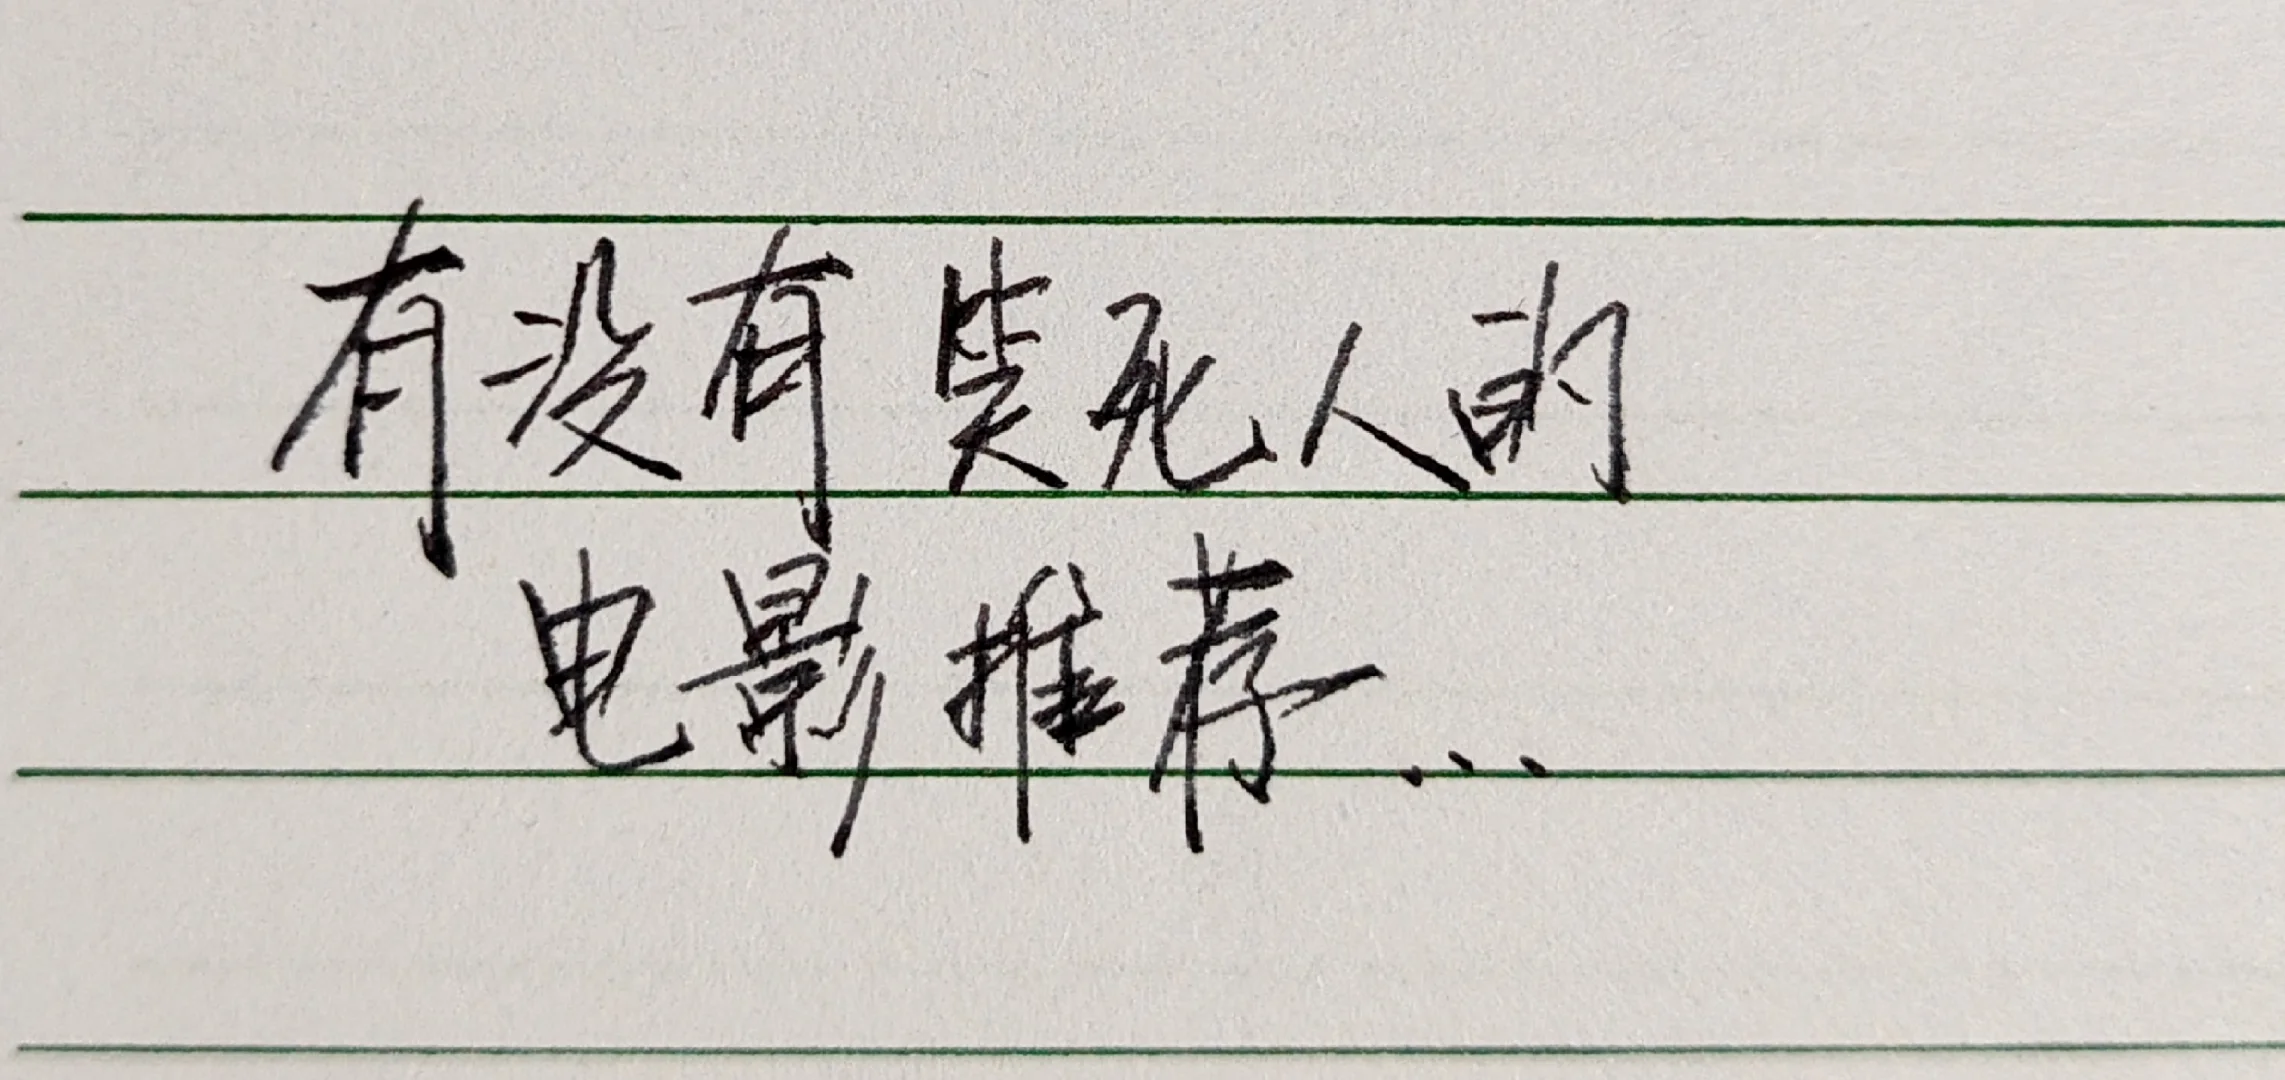 有没有笑死人的
电影推荐...